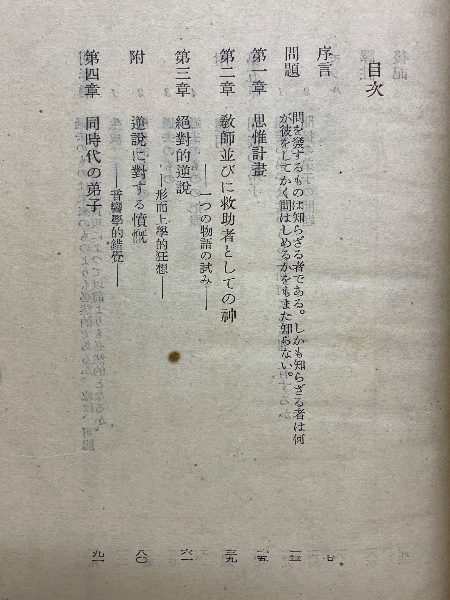 目次
序言 七
問題
問を發するものは知らざる者である。しかも知らざる者は何
が彼をしてかく問はしめるかをもまた知らない。
第一章 思惟計畫 一五
第二章 敎師並びに救助者としての神 二九
――一つの物語の試み――
第三章 絕對的逆說 六一
――形而上學的狂想――
附 逆說に對する憤慨 八〇
――音響學的錯覺――
第四章 同時代の弟子 九一